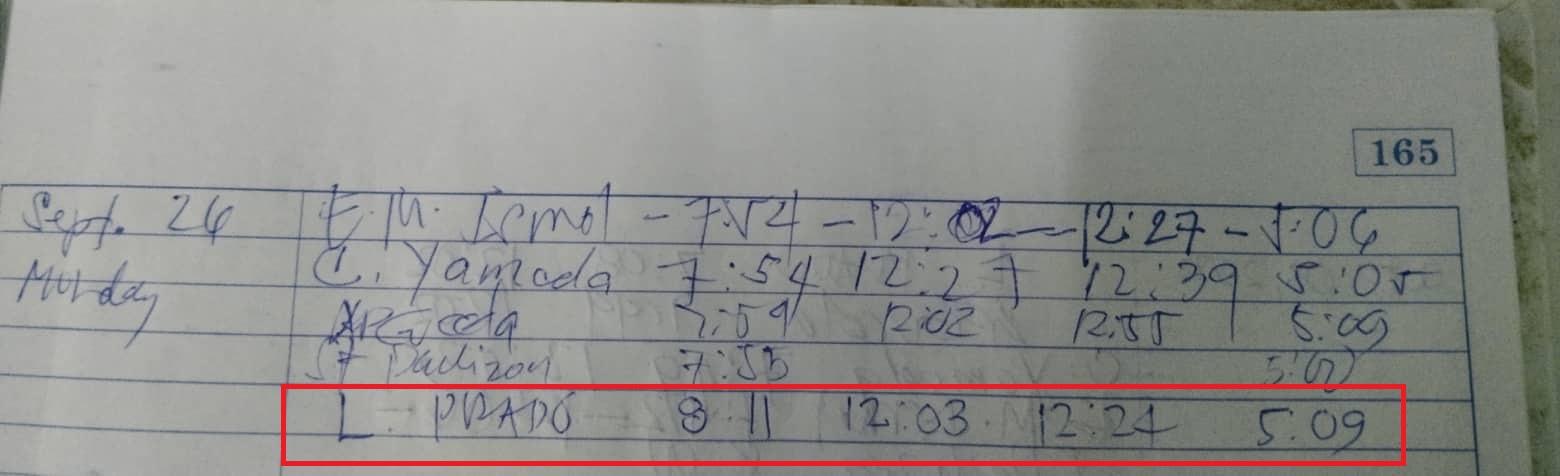 165
Sept. 26 E.M. - 7:54 - 12:02 - 12:27 - 5:06
C. Yamada 7:54 12:27 12:39 5:05
Monday 7:59 12:02 12:55 5:09
7:55
L - PRADO - 8 11 12:03 12:24 5:09